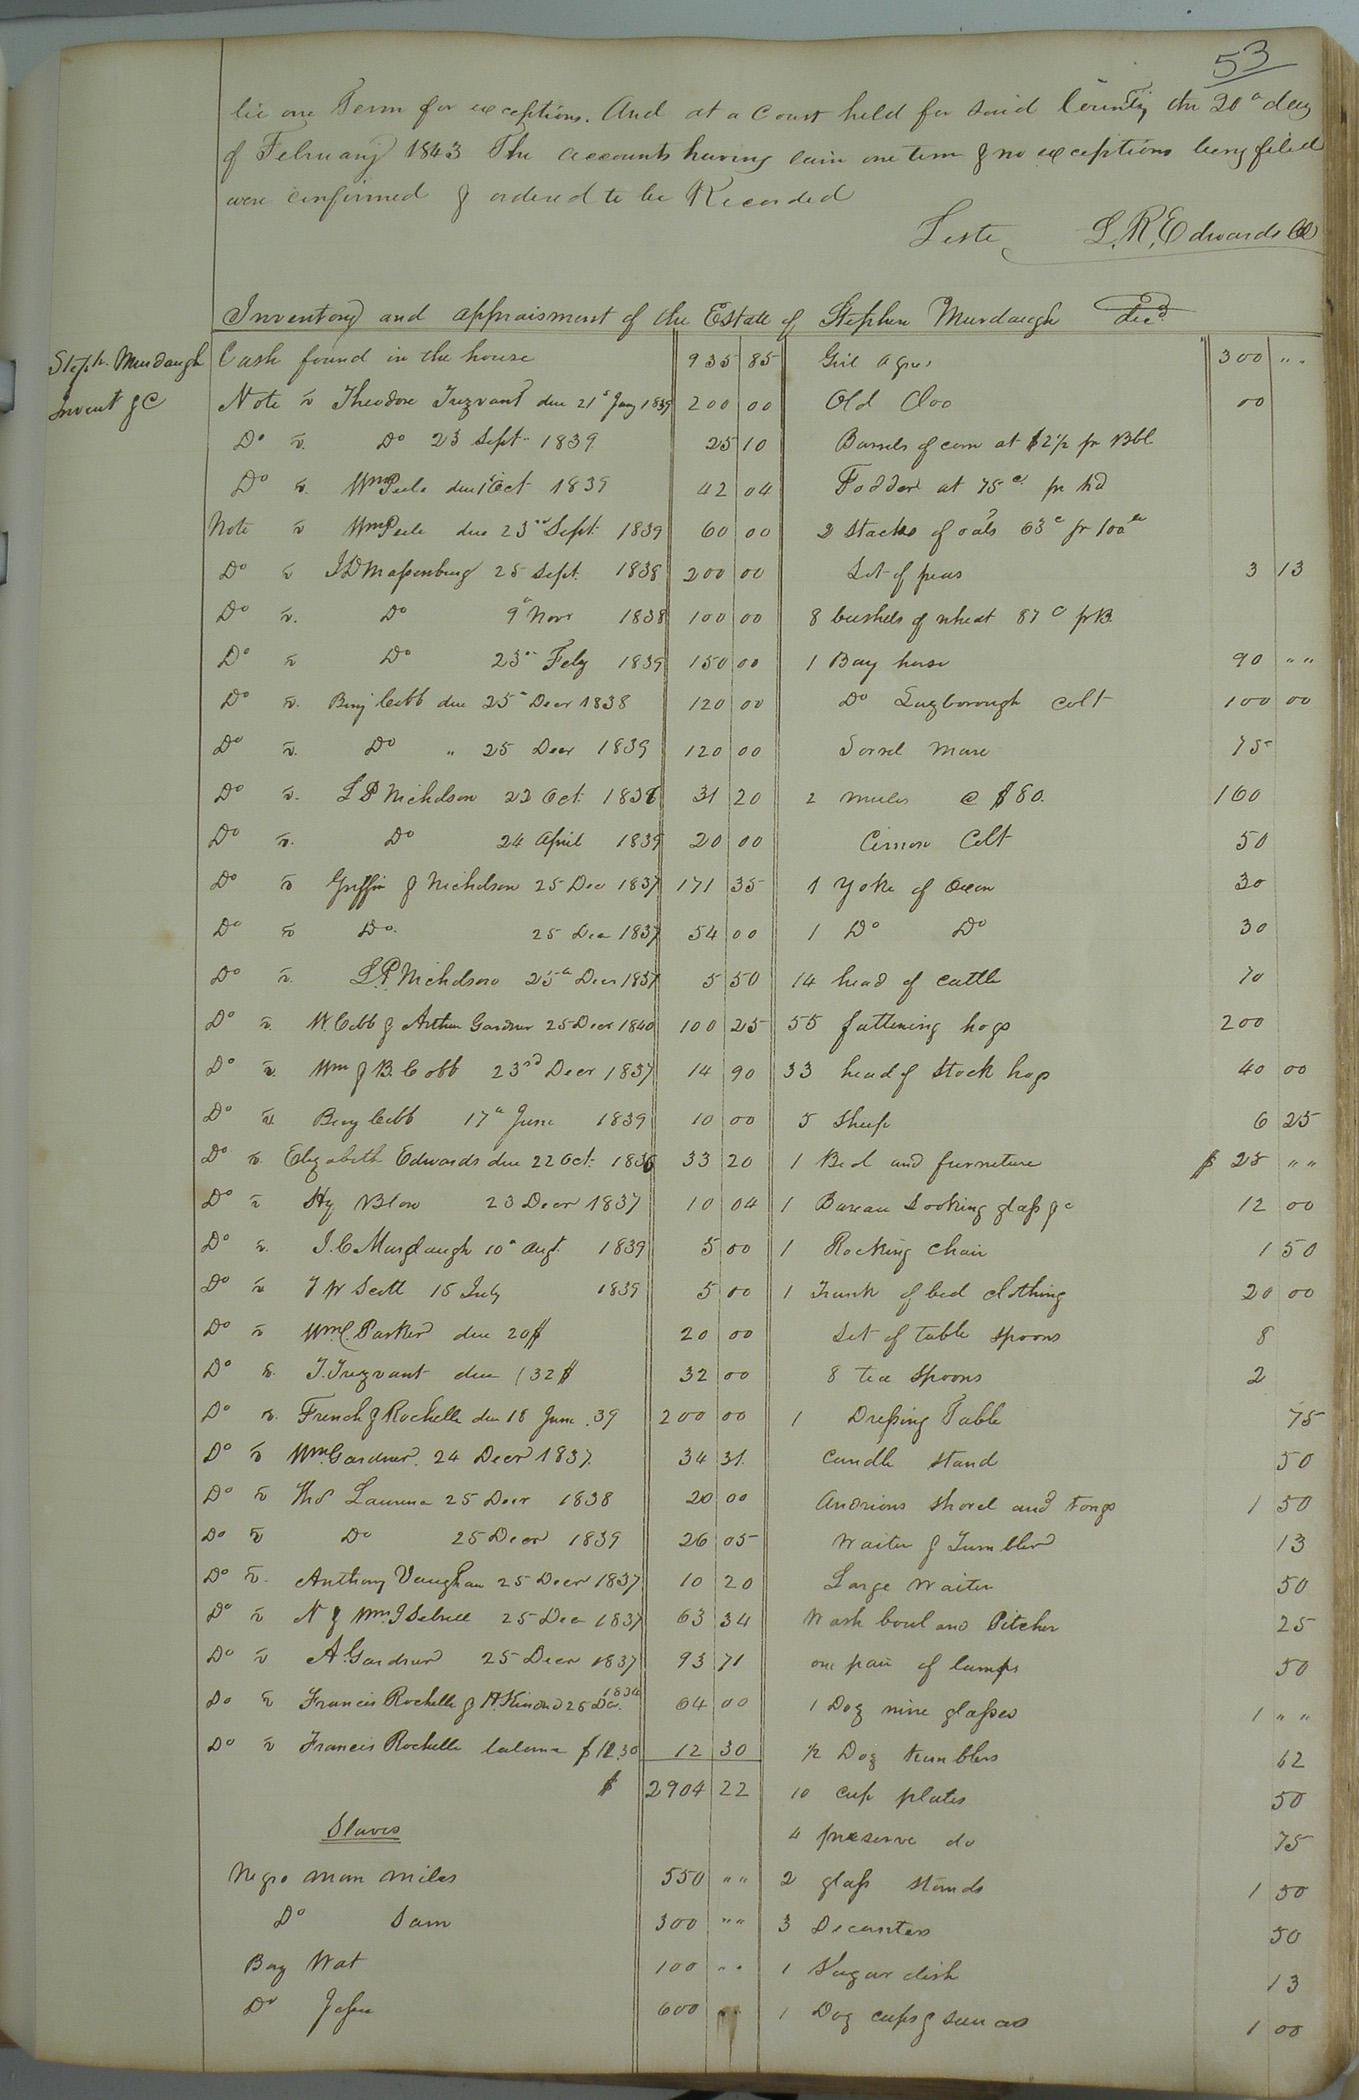 53
lie one Term for exceptions. And at a Court held for said County the 20th day
of February 1843 The accounts having lain one term & no exceptions being filed
were confirmed & ordered to be Recorded
Teste L. R. Edwards Cl
Inventory and appraisment of the Estate of Stephen Murdaugh decd
Steph. Murdaugh
Invent &C
Cash found in the house 935 85
Note vs Theodore Trezvant due 21st Jany 1839 200 00
Do vs. Do 23 Sept. 1839 25 10
Do vs. Wm Peele due 1st Oct 1839 42 04
Note vs Wm Peele due 23rd Sept. 1839 60 00
Do vs J D Massenburg 25 Sept. 1838 200 00
Do vs. Do 9th Novr 1838 100 00
Do vs Do 23rd Feby 1839 150 00
Do vs. Benj Cobb due 25th Decr 1838 120 00
Do vs. Do " 25 Decr 1839 120 00
Do vs. L P Nicholson 22 Oct. 1836 31 20
Do vs. Do 24 April 1839 20 00
Do vs Griffin & Nicholson 25 Dec 1837 171 35
Do vs Do. 25 Dec 1837 54 00
Do vs. L. P. Nicholson 25th Decr 1837 5 50
Do vs. W. Cobb & Arthur Gardner 25 Decr 1840 100 25
Do vs. Wm & B. Cobb 23rd Decr 1837 14 90
Do vs Benj Cobb 17th June 1839 10 00
Do vs. Elizabeth Edwards due 22 Oct. 1836 33 20
Do vs Hy Blow 23 Decr 1837 10 04
Do vs. J. C Murdaugh 10th Augt. 1839 5 00
Do vs J W Scott 15 July 1839 5 00
Do vs Wm C. Parker due 20$ 20 00
Do vs. T. Trezvant due (32$ 32 00
Do vs. French & Rochelle due 18 June .39 200 00
Do vs Wm. Gardner. 24 Decr 1837. 34 31.
Do vs Thos Laurence 25 Decr 1838 20 00
Do vs Do 25 Decr 1839 26 05
Do vs. Anthony Vaughan 25 Decr 1837 10 20
Do vs N & Wm. J Sebrell 25 Dec 1837 63 34
Do vs A. Gardner 25 Decr 1837 93 71
Do vs Francis Rochelle & H. Kindred 25 Dec. 1834 64 00
Do vs Francis Rochelle balance $12.30 12 30
$ 2904 22
Slaves
Negro man Miles 550 " "
Do Sam 300 " "
Boy Wat 100 " "
Do 600 " "
Girl Agnes 300 " "
Old Cloo 00
Barrels of corn at $2½ pr Bbl
Fodder at 75c. pr hd
2 Stacks of oats 63c pr 100lb
Lot of peas 3 13
8 bushels of wheat 87c pr B.
1 Bay horse 90 " "
Do Lugborough colt 100 00
Sorrel Mare 75
2 mules @ $80. 160
Colt 50
1 Yoke of Oxen 30
1 Do Do 30
14 head of cattle 70
55 fattening hogs 200
33 head of Stock hogs 40 00
5 Sheep 6 25
1 Bed and furneture $ 25 " "
1 Bureau Looking glass &c 12 00
1 Rocking Chair 1 50
1 Trunk of bed clothing 20 00
Set of table Spoons 8
8 tea Spoons 2
1 Dressing Table 75
Candle Stand 50
Andrions shovel and tongs 1 50
Waiter & Tumbler 13
Large Waiter 50
Wash bowl and Pitcher 25
one pair of lamps 50
1 Doz wine glasses 1 " "
½ Doz tumblers 62
10 cup plates 50
4 preserve do 75
2 glass Stands 1 50
3 Decanters 50
1 Sugar dish 13
1 Doz cups & saucers 1 00